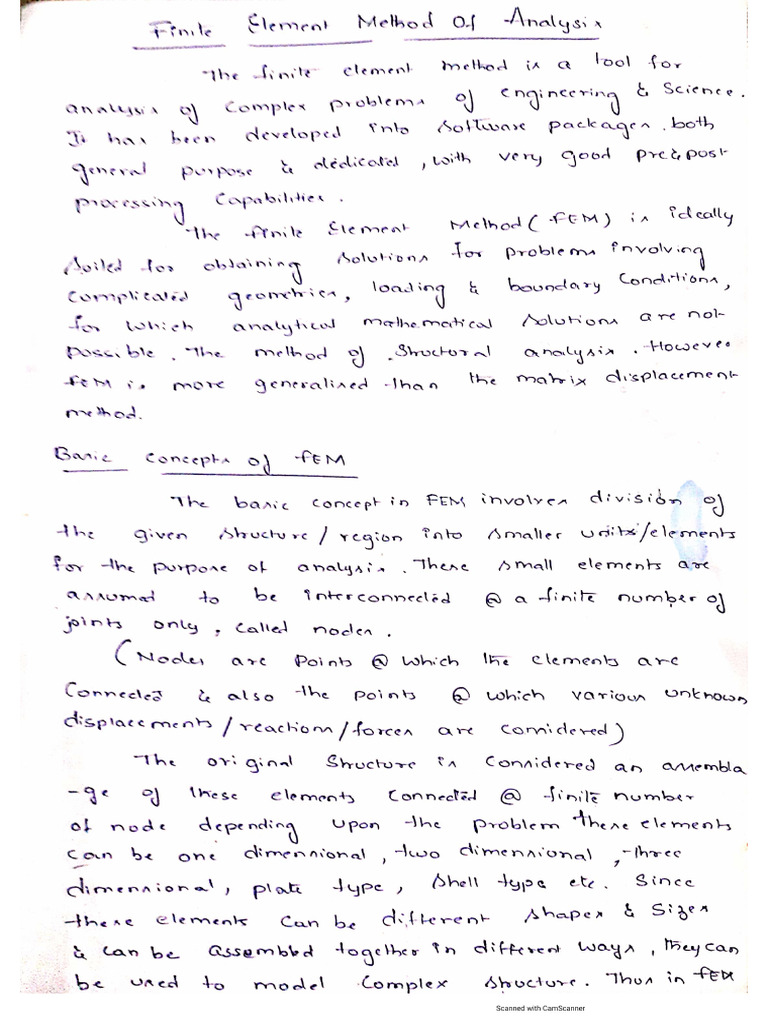 Finite Element Method Of Analysis
The finite element method is a tool for
analysis of complex problems of engineering & Science.
It has been developed into software packages. both
general purpose & dedicated, with very good pre & post
processing Capabilities.
The finite Element Method (FEM) is ideally
suited for obtaining solutions for problems involving
complicated geometries, loading & boundary Conditions,
for which analytical mathematical solutions are not
possible. The method of structural analysis. However
FEM is more generalised than the matrix displacement
method.
Basic concepts of FEM
The basic concept in FEM involves division of
the given structure/region into smaller units/elements
for the purpose of analysis. These small elements are
assumed to be interconnected @ a finite number of
joints only, called nodes.
(Nodes are Points @ which the elements are
Connected & also the points @ which various unknown
displacements/reactions/forces are considered)
The original Structure is Considered an assembla
-ge of these elements Connected @ finite number
of node depending upon the problem these elements
can be one dimensional, two dimensional, three
dimensional, plate type, shell type etc. Since
these elements Can be different shapes & Sizes
& can be assembbd together in different ways, they can
be used to model Complex structure. Thus in FEM
Scanned with CamScanner